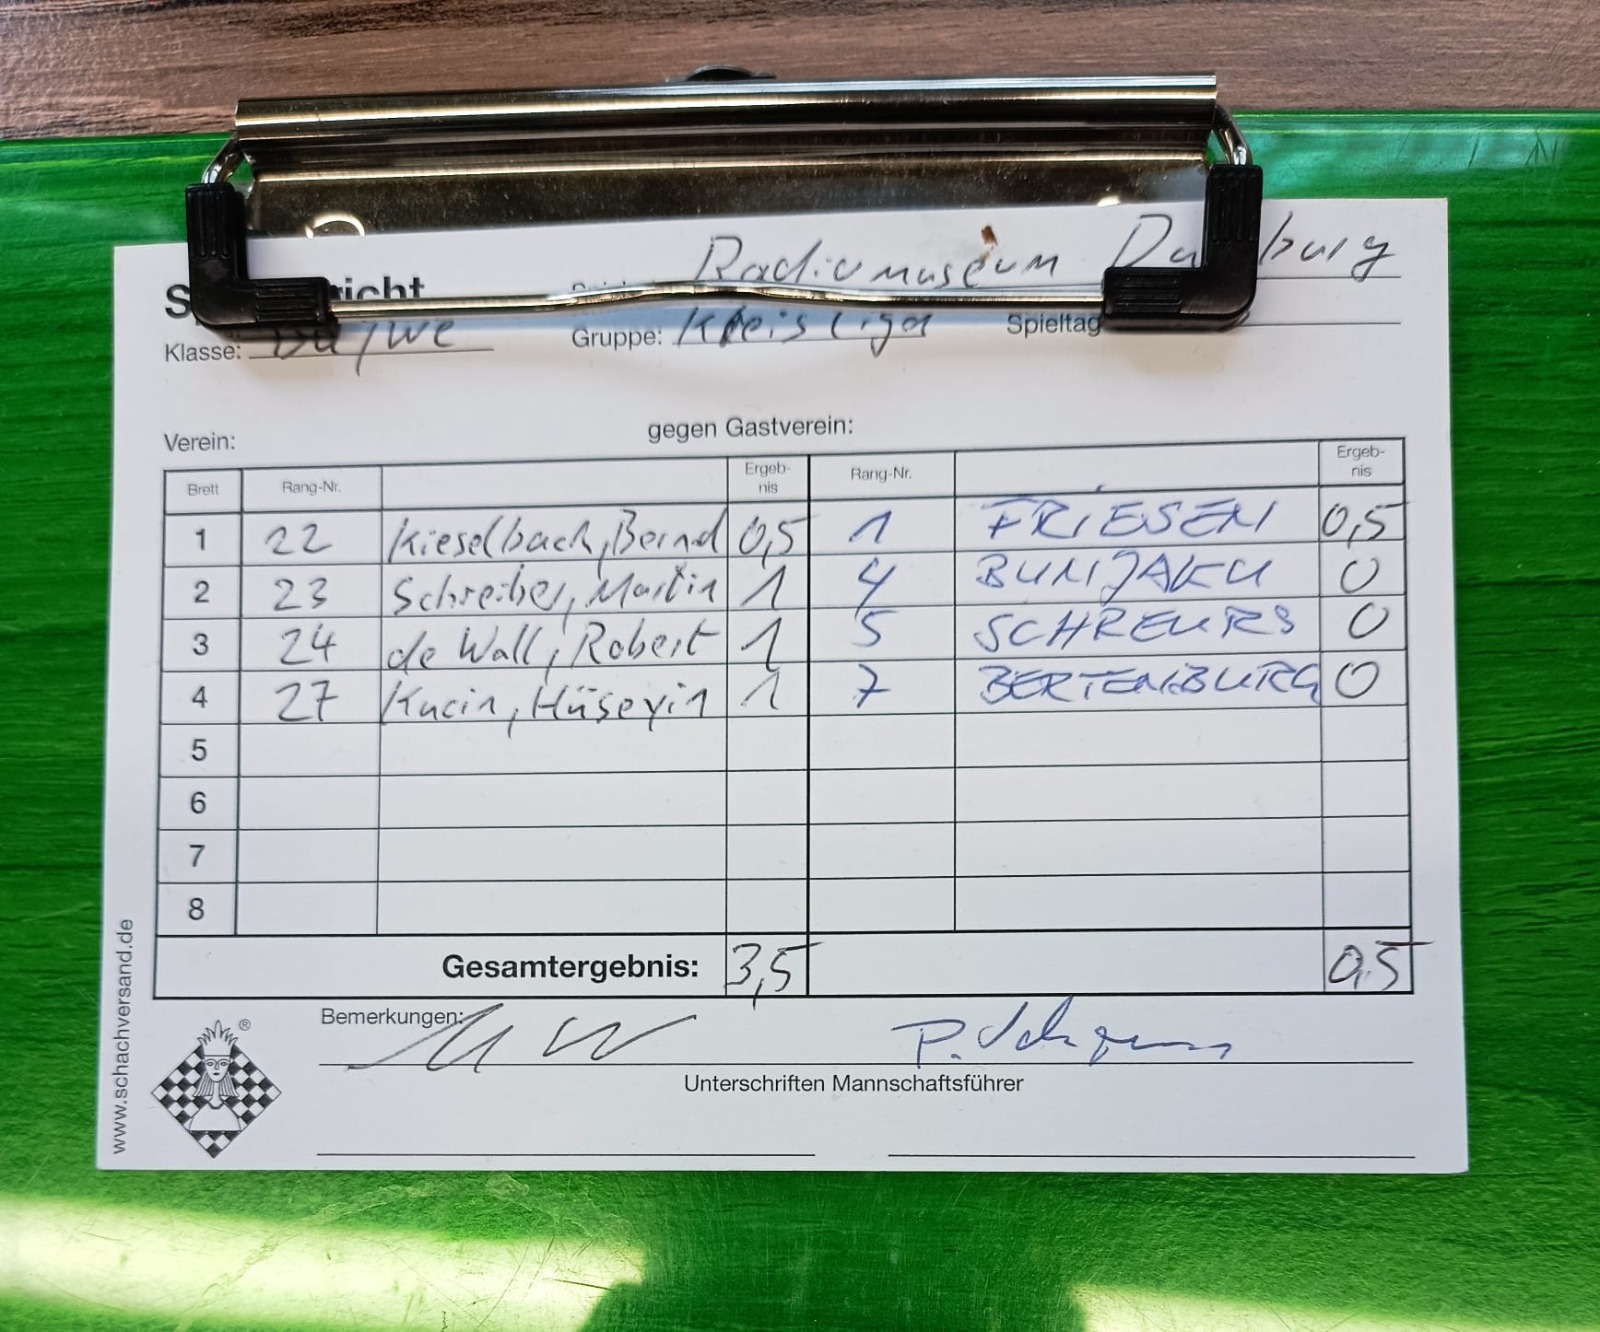 Radiomuseum Duisburg
Klasse: Du/We Gruppe: Kreisliga Spieltag
Verein: gegen Gastverein:
Brett Rang-Nr. Ergeb-nis Rang-Nr. Ergeb-nis
1 22 Kieselbach, Bernd 0,5 1 FRIESEN 0,5
2 23 Schreiber, Martin 1 4 BUNJAKU 0
3 24 de Wall, Robert 1 5 SCHREURS 0
4 27 Kucin, Hüseyin 1 7 BERTENBURG 0
5
6
7
8
Gesamtergebnis: 3,5 0,5
Bemerkungen:
Unterschriften Mannschaftsführer
www.schachversand.de
®